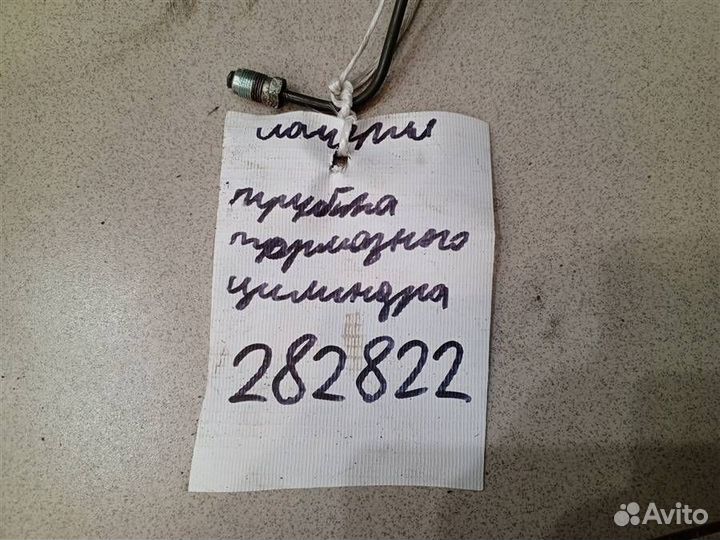 трубка
тормозного
цилиндра
282822
Avito